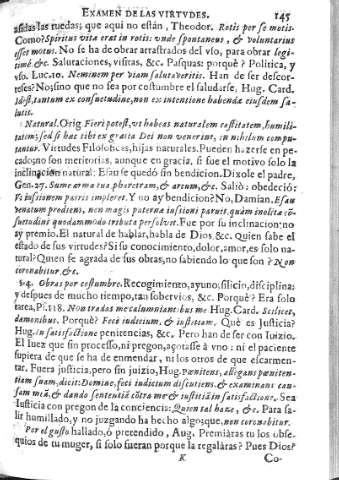 EXAMEN DE LAS VIRTVDES. 145
asidas las ruedas; que aqui no están, Theodor. Rotis por se motis.
Como? Spiritus vita erat in rotis: vnde spontaneus, & voluntarius
esset motus. No se ha de obrar arrastrados del vso, para obrar legi-
timè &c. Salutaciones, visitas, &c. Pasquas: porquè? Politica, y
vso. Luc. 10. Neminem per viam salutaveritis. Han de ser descor-
teses? No; sino que no sea por costumbre el saludarse, Hug. Card.
Idest, tantum ex consuetudine, non ex intentione habendæ eiusdem sa-
lutis.
Natural. Orig. Fieri potest, vt habeas naturalem castitatem, humili-
tatem; sed si hæc tibi ex gratia Dei non venerint, in nihilum compu-
tantur. Virtudes Filosoficas, hijas naturales. Pueden hazerse en pe-
cado; no son meritorias, aunque en gracia, si fue el motivo solo la
inclinacion natural: Esaù se quedó sin bendicion. Dixole el padre,
Gen. 27. Sume arma tua pharetram, & arcum, &c. Saliò: obedeciò:
Et iussionem patris impleret. Y no ay bendicion? No, Damian. Esau
venatum prodiens, non magis paterna iussioni paruit, quàm inolita cō-
suetudini quodammodo tributa persolvit. Fue por su inclinacion; no
ay premio. El natural de hablar, habla de Dios, &c. Quien sabe el
estado de sus virtudes? Si su conocimiento, dolor, amor, es solo na-
tural? Quien se agrada de sus obras, no sabiendo lo que son? Non
coronabitur, &c.
34. Obras por costumbre. Recogimiento, ayuno, silicio, disciplina:
y despues de mucho tiempo, tan sobervios, &c. Porquè? Era solo
tarea, Ps. 118. Non tradas me calumniantibus me Hug. Card. Scilicet,
dæmonibus. Porquè? Feci iudicium, & iustitiam. Què es Justicia?
Hug. in satisfactione penitencias, &c. Pero han de ser con Juizio.
El Juez que sin processo, ni pregon, açotasse à vno: ni el paciente
supiera de que se ha de enmendar, ni los otros de que escarmen-
tar. Fuera justicia, pero sin juizio, Hug. Pœnitens, allegans pœniten-
tiam suam, dicit: Domine, feci iudicium discutiens, & examinans cau-
sam meā, & dando sententiā cōtra me & iustitiā in satisfactione. Sea
Justicia con pregon de la conciencia: Quien tal haze, &c. Para sa-
lir humillado, y no juzgando ha hecho algo; que, non coronabitur.
Por el gusto hallado, ò pretendido, Aug. Premiàras tu los obse-
quios de tu muger, si solo fueran porque la regalàras? Pues Dios?
K Co-